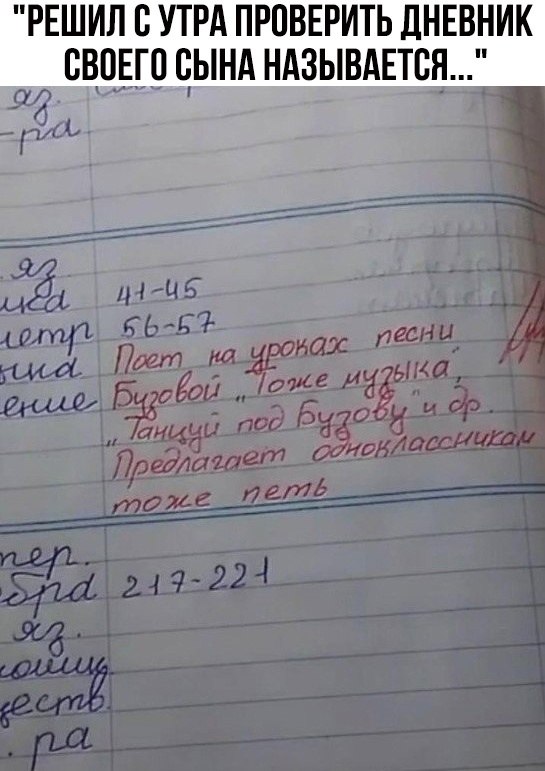 "РЕШИЛ С УТРА ПРОВЕРИТЬ ДНЕВНИК
СВОЕГО СЫНА НАЗЫВАЕТСЯ..."
яз.
-ра
яз
ика 41-45
метр 56-57
ыка Поет на уроках песни
ение Бузовой „Тоже музыка",
„Танцуй под Бузову" и др.
Предлагает одноклассникам
тоже петь
тер.
бра 217-221
яз.
еств.
. ра